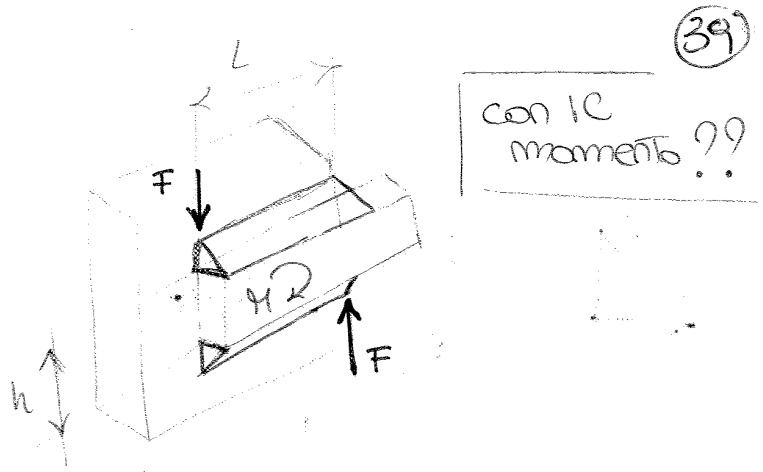 39
L
con IC
momento ??
F
M
F
h